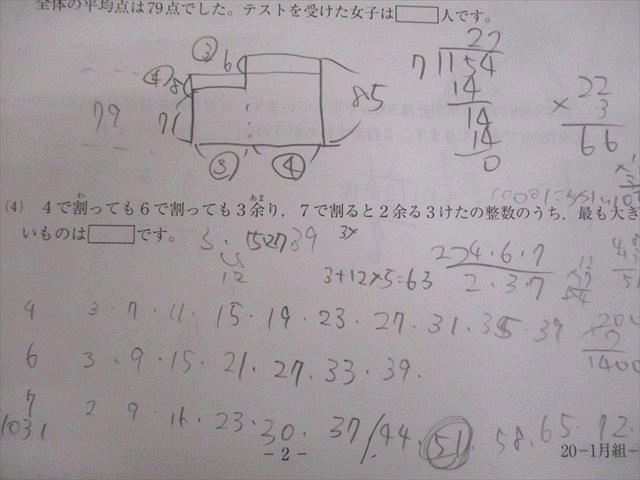 全体の平均点は79点でした。テストを受けた女子は□人です。
③ 6
④ 8
79 71 85
③ ④
22
7 154
14
14
14
0
22
× 3
66
(4) 4で割っても6で割っても3余り，7で割ると2余る3けたの整数のうち，最も大き
わ あま
いものは□です。
3+12×5=63
2)4・6・7
2・3・7
4 3・7・11・15・19・23・27・31・35・39
6 3・9・15・21・27・33・39.
7 2 9・16・23・30・37 44・51・58・65・72
1031
200
× 7
1400
－2－
20－1月組－